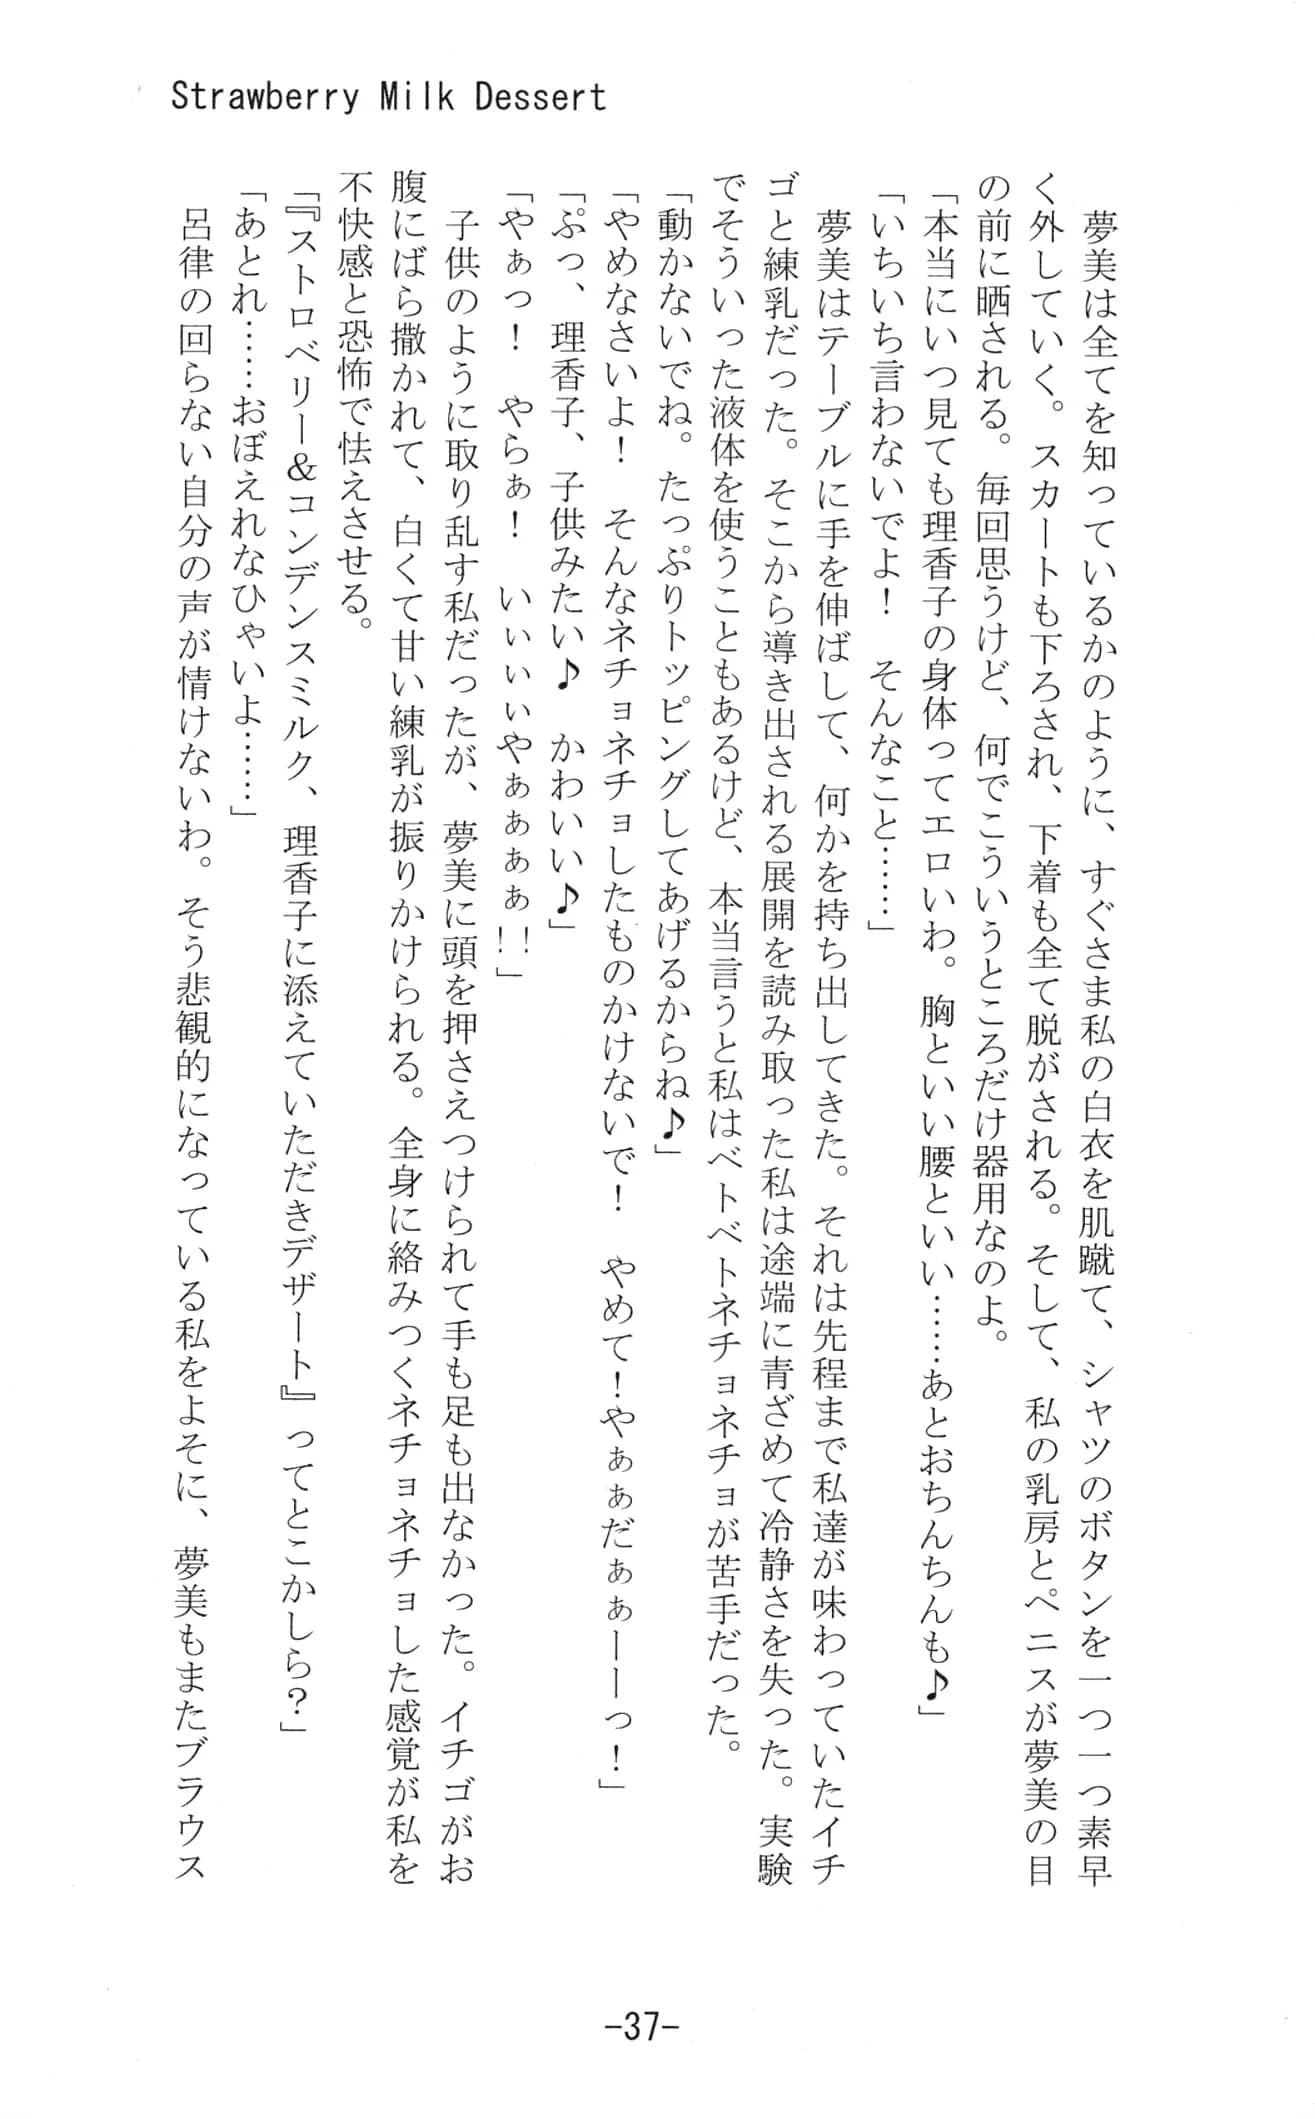 Strawberry Milk Dessert
　夢美は全てを知っているかのように、すぐさま私の白衣を肌蹴て、シャツのボタンを一つ一つ素早
く外していく。スカートも下ろされ、下着も全て脱がされる。そして、私の乳房とペニスが夢美の目
の前に晒される。毎回思うけど、何でこういうところだけ器用なのよ。
「本当にいつ見ても理香子の身体ってエロいわ。胸といい腰といい……あとおちんちんも♪」
「いちいち言わないでよ！　そんなこと……」
　夢美はテーブルに手を伸ばして、何かを持ち出してきた。それは先程まで私達が味わっていたイチ
ゴと練乳だった。そこから導き出される展開を読み取った私は途端に青ざめて冷静さを失った。実験
でそういった液体を使うこともあるけど、本当言うと私はベトベトネチョネチョが苦手だった。
「動かないでね。たっぷりトッピングしてあげるからね♪」
「やめなさいよ！　そんなネチョネチョしたものかけないで！　やめて！やぁぁだぁぁーーっ！」
「ぷっ、理香子、子供みたい♪　かわいい♪」
「やぁっ！　やらぁ！　いぃぃぃやぁぁぁぁ!!」
　子供のように取り乱す私だったが、夢美に頭を押さえつけられて手も足も出なかった。イチゴがお
腹にばら撒かれて、白くて甘い練乳が振りかけられる。全身に絡みつくネチョネチョした感覚が私を
不快感と恐怖で怯えさせる。
「『ストロベリー＆コンデンスミルク、理香子に添えていただきデザート』ってとこかしら？」
「あとれ……おぼえれなひゃいよ……」
　呂律の回らない自分の声が情けないわ。そう悲観的になっている私をよそに、夢美もまたブラウス
-37-